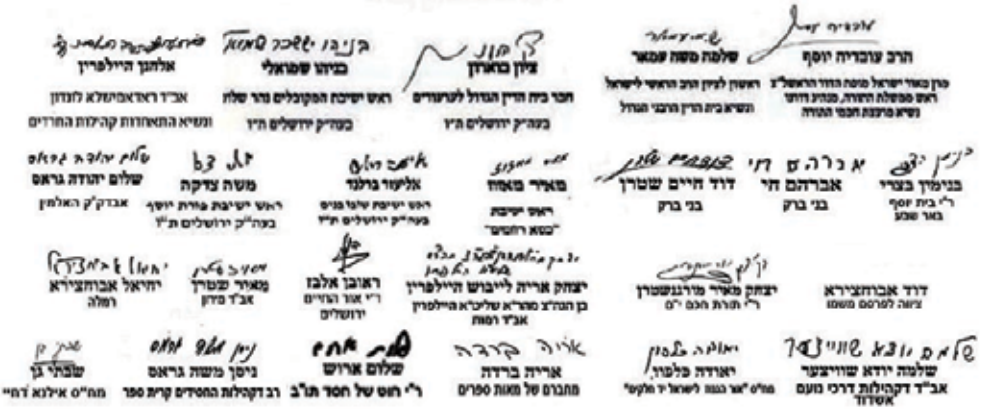 הרב עובדיה יוסף
מרן מאור ישראל פוסק הדור הראשל"צ
ראש ממשלת התורה, מנהיג הדור
נשיא מועצת חכמי התורה
שלמה משה עמאר
ראשון לציון הרב הראשי לישראל
ונשיא בית הדין הרבני הגדול
ציון בוארון
חבר בית הדין הגדול לערעורים
בעה"ק ירושלים ת"ו
בניהו יששכר שמואלי
בניהו שמואלי
ראש ישיבת המקובלים נהר שלום
בעה"ק ירושלים ת"ו
אלחנן היילפרין
אב"ד ראדאמישלא לונדון
ונשיא התאחדות קהילות החרדים
בנימין בצרי
ר"י בית יוסף
באר שבע
אברהם חי
אברהם חי
בני ברק
דוד חיים שטרן
בני ברק
מאיר מאזוז
מאיר מאזוז
ראש ישיבת
"כסא רחמים"
אליעזר ברלנד
ראש ישיבת שובו בנים
בעה"ק ירושלים ת"ו
משה צדקה
ראש ישיבת פורת יוסף
בעה"ק ירושלים ת"ו
שלום יהודה גראס
שלום יהודה גראס
אבדק"ק האלמין
דוד אבוחצירא
ציווה לפרסם משמו
יצחק מאיר מורגנשטרן
ר"י תורת חכם י"ם
יצחק אריה לייבוש היילפרין
בן הגה"צ מהר"א שליט"א היילפרין
אב"ד רמות
ראובן אלבז
ר"י אור החיים
ירושלים
מאיר שטרן
מאיר שטרן
אב"ד
יחיאל אבוחצירא
יחיאל אבוחצירא
רמלה
שלמה יודא שווייצער
שלמה יודא שוויצער
אב"ד דקהילות דרכי נועם
אשדוד
יאודה כלפון
יאודה כלפון
מח"ס
אריה ברדה
אריה ברדה
מחברם של מאות ספרים
שלום ארוש
שלום ארוש
ר"י חוט של חסד תו"ב
ניסן משה גראס
ניסן משה גראס
רב דקהילות החסידים קרית ספר
שבתי גן
שבתי גן
מח"ס אילנא דחיי